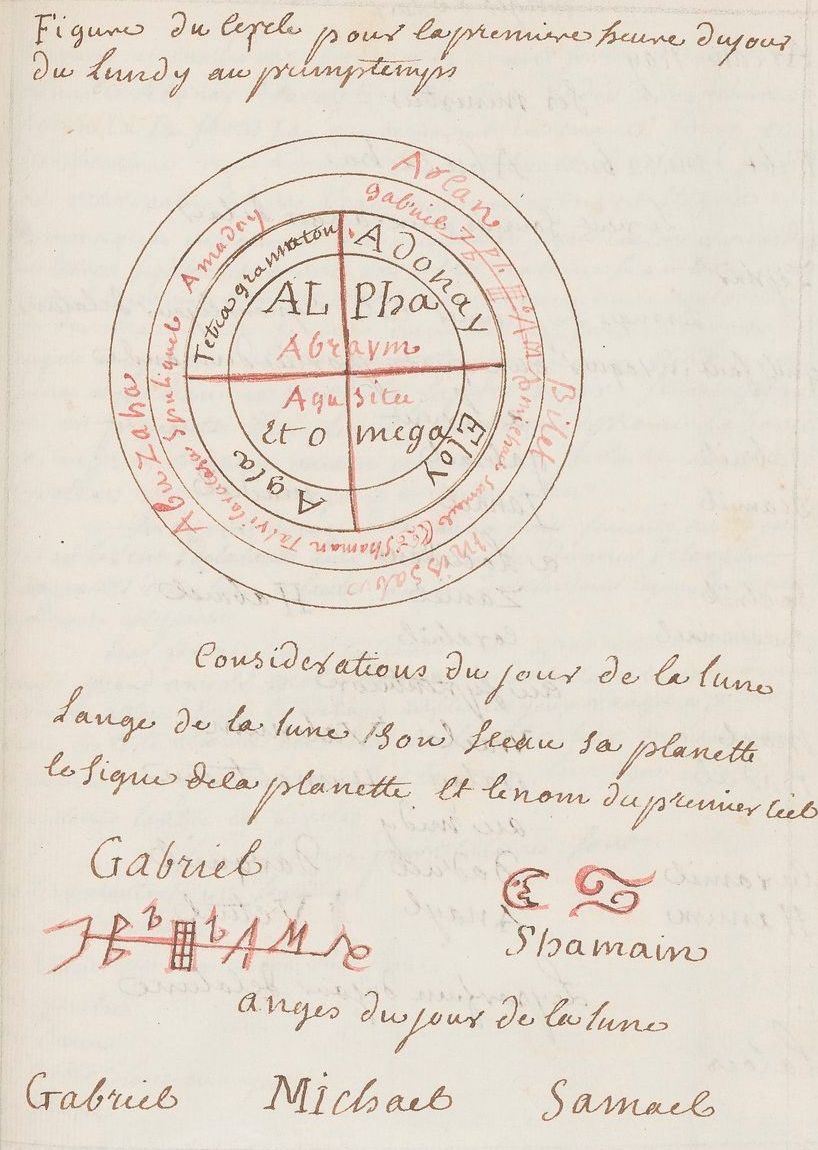 Figure du Cercle pour la premiere heure du jour
du Lundy au primptemps
Arcan
gabriel
Amaday
Tetra grammaton
Adonay
AL Pha
Abraym
Agusita
Et o mega
Eloy
Agla
Bilet
Missabu
Abuzaha
michael samael
Shaman Talvi
Considerations du jour de la lune
Lange de la lune son sceau sa planette
le signe de la planette et le nom du premier ciel
Gabriel
Shamain
anges du jour de la lune
Gabriel Michael Samael